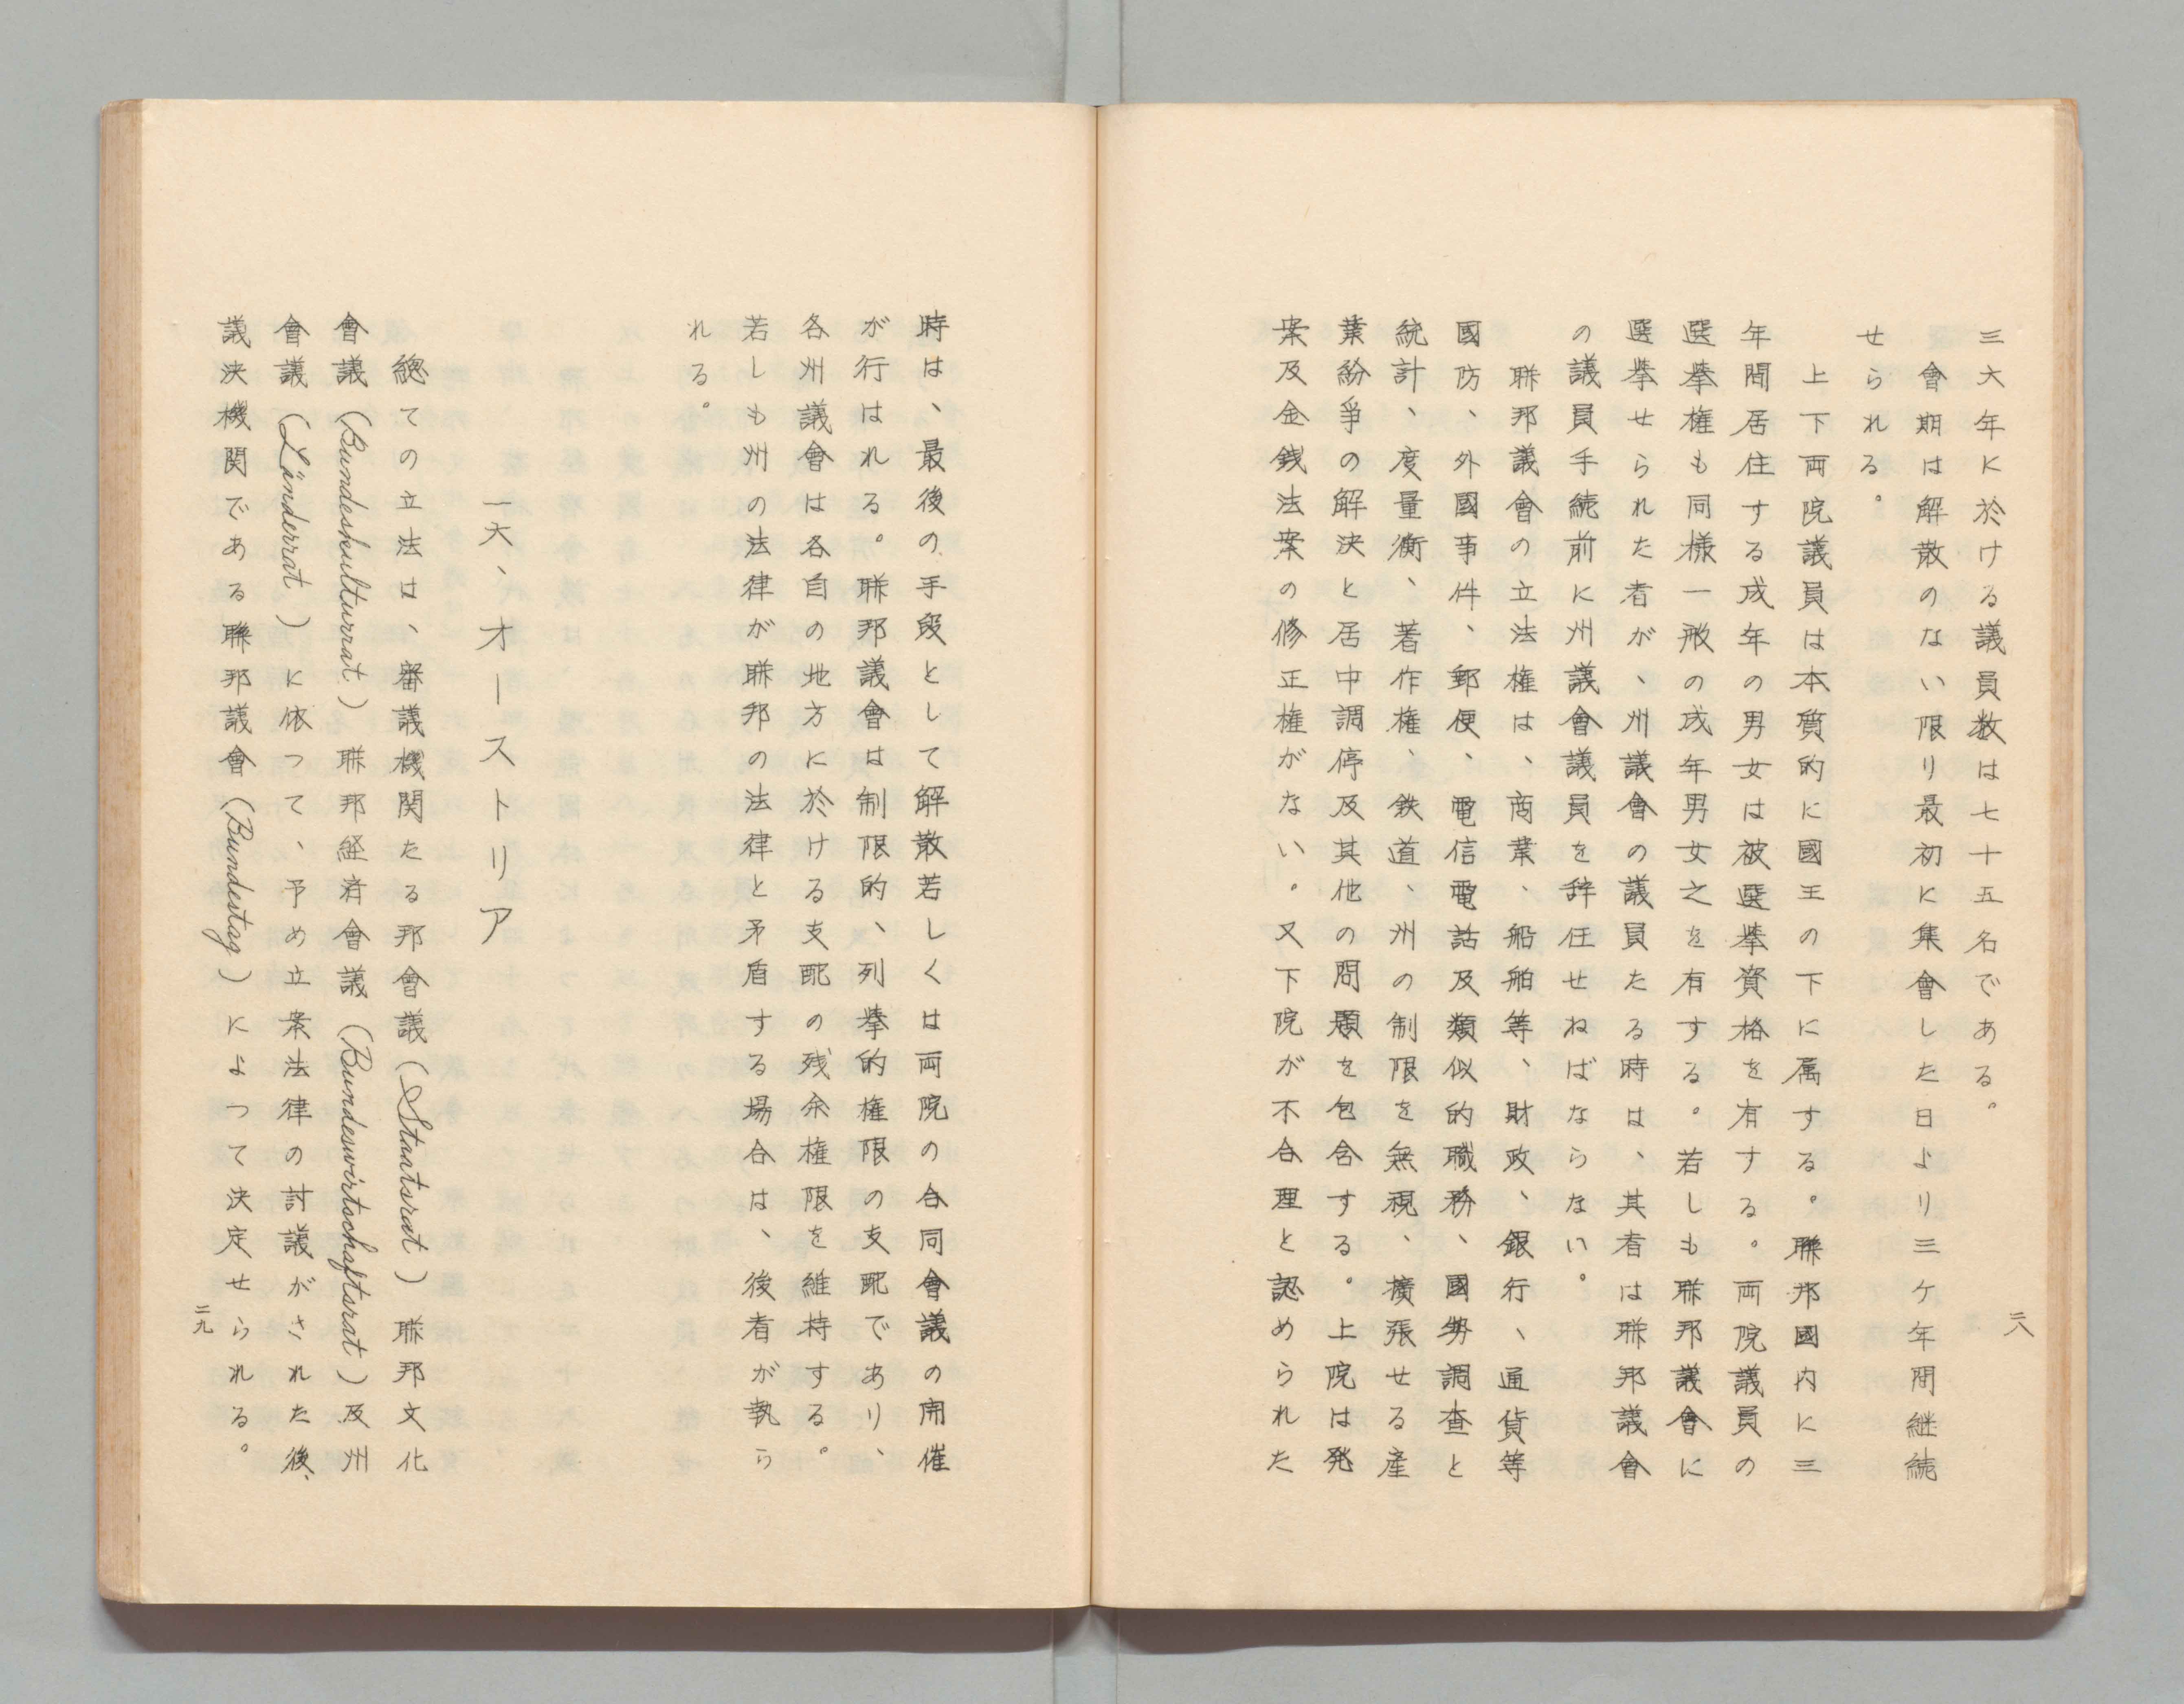 三六年に於ける議員数は七十五名である。
會期は解散のない限り最初に集會した日より三ケ年間継続
せられる。
上下両院議員は本質的に國王の下に属する。聯邦國内に三
年間居住する成年の男女は被選挙資格を有する。両院議員の
選挙権も同様一般の成年男女之を有する。若しも聯邦議會に
選挙せられた者が、州議會の議員たる時は、其者は聯邦議會
の議員手続前に州議會議員を辞任せねばならない。
聯邦議會の立法権は、商業、船舶等、財政、銀行、通貨等
國防、外國事件、郵便、電信電話及類似的職務、國勢調査と
統計、度量衡、著作権、鉄道、州の制限を無視、擴張せる産
業紛爭の解決と居中調停及其他の問題を包含する。上院は発
案及金銭法案の修正権がない。又下院が不合理と認められた
二八
時は、最後の手段として解散若しくは両院の合同會議の開催
が行はれる。聯邦議會は制限的、列挙的権限の支配であり、
各州議會は各自の地方に於ける支配の残余権限を維持する。
若しも州の法律が聯邦の法律と矛盾する場合は、後者が執ら
れる。
一六、オーストリア
総ての立法は、審議機関たる邦會議（Staatsrat）聯邦文化
會議（Bundeskulturrat）聯邦経済會議（Bundeswirtschaftsrat）及州
會議（Länderrat）に依つて、予め立案法律の討議がされた後、
議決機関である聯邦議會（Bundestag）によつて決定せられる。
二九